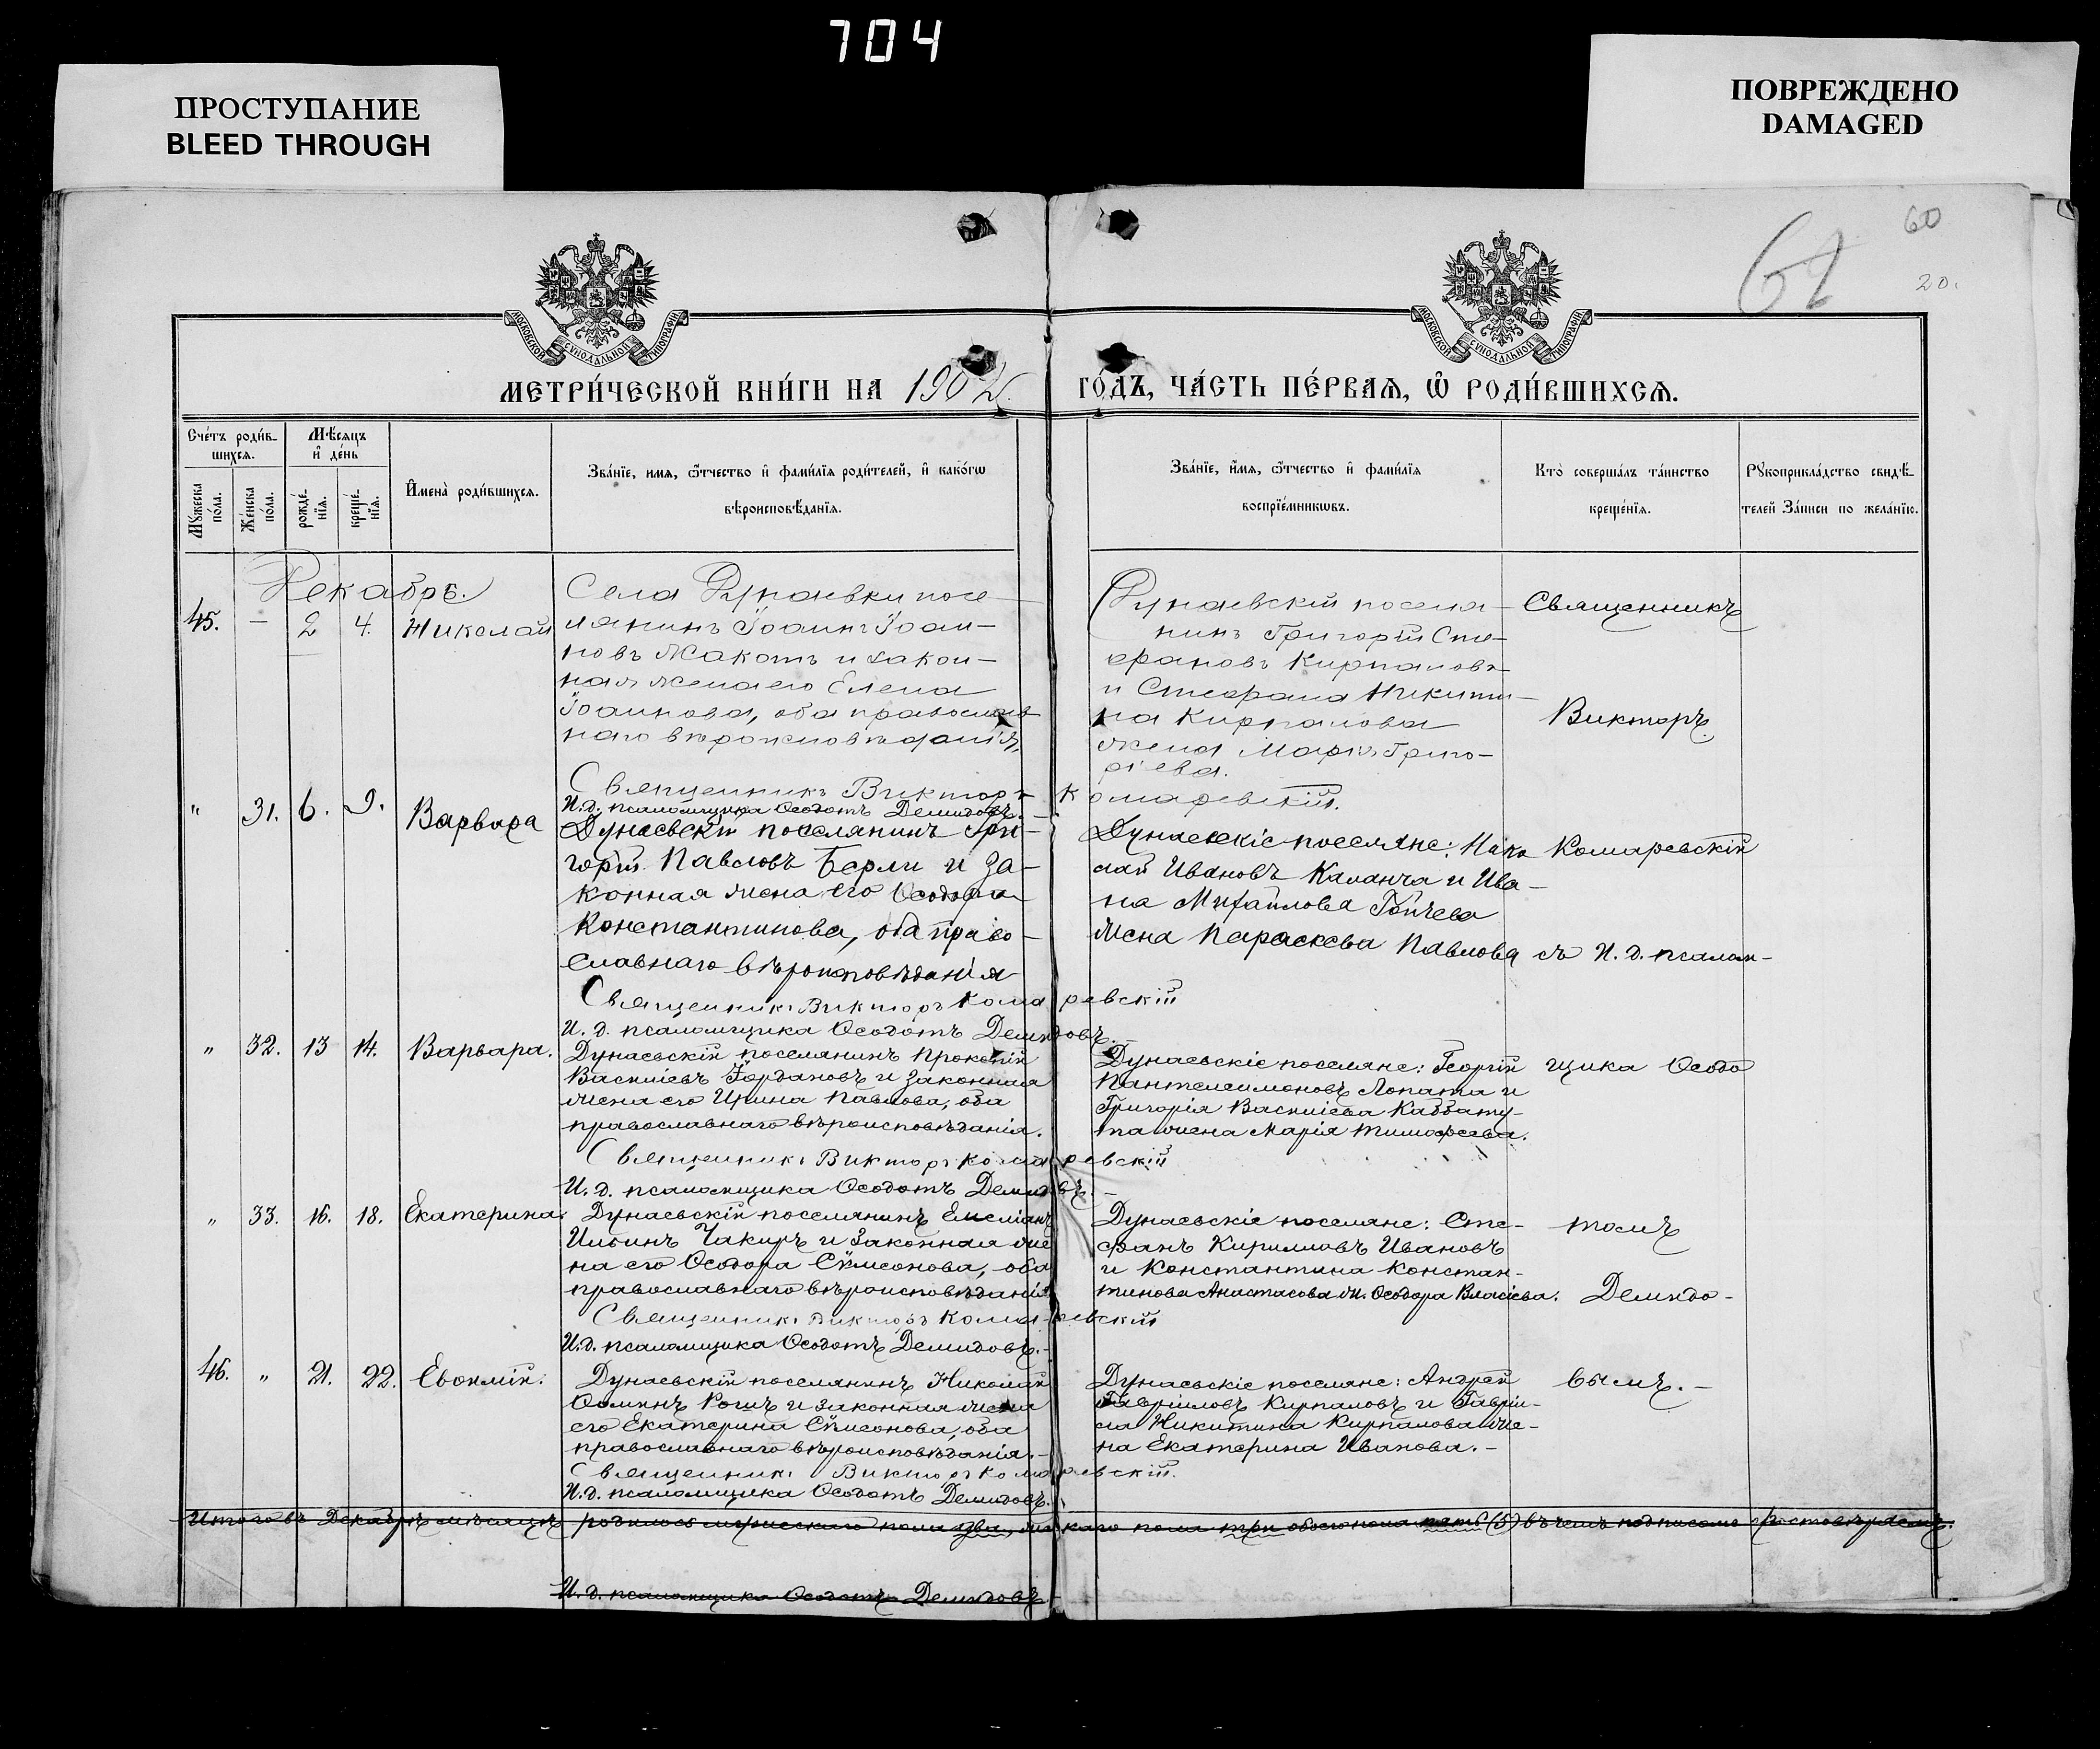 704
ПРОСТУПАНИЕ
BLEED THROUGH
ПОВРЕЖДЕНО
DAMAGED
60
20.
МОСКОВСКОЙ СѴНОДАЛЬНОЙ ТИПОГРАФІИ
МОСКОВСКОЙ СѴНОДАЛЬНОЙ ТИПОГРАФІИ
МЕТРИ́ЧЕСКОЙ КНИ́ГИ НА 1902
ГО́ДЪ, ЧА́СТЬ ПЕ́РВАѦ, Ѽ РОДИ́ВШИХСѦ.
Сче́тъ роди́в-
шихсѧ.
Мꙋжеска по́ла.
Же́нска по́ла.
Мѣ́сѧцъ
и҆ де́нь
рожде́-нїѧ.
креще́-нїѧ.
И҆мена̀ роди́вшихсѧ.
Зва́нїе, имѧ, ѻ҆́тчество и҆ фами́лїѧ роди́телей, и҆ како́гѡ
вѣроисповѣ́данїѧ.
Зва́нїе, и҆́мѧ, ѻ҆́тчество и҆ фами́лїѧ
воспрїе́мникѡвъ.
Кто̀ соверша́лъ та́инство
креще́нїѧ.
Рꙋкоприкла́дство свидѣ́-
телей За́писи по жела́нїю.
Декабрь.
45. — 2 4. Николай
Села Дунаевки посе-
лянинъ Іоаннъ Іоан-
новъ Жакотъ и закон-
ная жена его Елена
Іоаннова, оба православ-
наго вѣроисповѣданія,
Дунаевскій поселя-
нинъ Григорій Сте-
фановъ Кирпаловъ
и Стефана Никити-
на Кирпалова
жена Марія Григо-
ріева.
Священникъ
Викторъ
Священникъ Викторъ Комаревскій.
И.д. псаломщика Ѳеодотъ Демидовъ.
" 31. 6. 9. Варвара
Дунаевскій поселянинъ Гри-
горій Павловъ Берли и за-
конная жена его Ѳеодора
Константинова, оба право-
славнаго вѣроисповѣданія
Дунаевскіе поселяне: Нико
лай Ивановъ Каланча и Ива-
на Михайлова Гойчева
жена Параскева Павлова
Комаревскій
съ И. д. псалом-
Священникъ Викторъ Комаревскій
И. д. псаломщика Ѳеодотъ Демидовъ.
" 32. 13 14. Варвара.
Дунаевскій поселянинъ Прокопій
Василіевъ Іордановъ и законная
жена его Ирина Павлова, оба
православнаго вѣроисповѣданія.
Дунаевскіе поселяне: Георгій
Пантелеимоновъ Лопата и
Григорія Василіева
жена Марія Тимофеева.
щика Ѳеодо
Священникъ Викторъ Комаревскій
И. д. псаломщика Ѳеодотъ Демидовъ.
" 33. 16. 18. Екатерина.
Дунаевскій поселянинъ Емеліанъ
Ильинъ Чакиръ и законная же
на его Ѳеодора Сѵмеонова, оба
православнаго вѣроисповѣданія
Дунаевскіе поселяне: Сте-
фанъ Кирилловъ Ивановъ
и Константина Констан-
тинова Анастасова ж. Ѳеодора Власіева.
томъ
Демидо-
Священникъ Викторъ Комаревскій
И.д. псаломщика Ѳеодотъ Демидовъ.
46. " 21. 22. Евѳимій.
Дунаевскій поселянинъ Николай
Ѳоминъ Рошъ и законная жена
его Екатерина Сѵмеонова, оба
православнаго вѣроисповѣданія.-
Дунаевскіе поселяне: Андрей
Гавріиловъ Кирпаловъ и Гаврі-
ла Никитина Кирпалова же-
на Екатерина Иванова.-
вымъ.-
Священникъ Викторъ Комаревскій.
И.д. псаломщика Ѳеодотъ Демидовъ.
Итого въ Декабрѣ мѣсяцѣ родилось мужескаго пола два, женскаго пола три обоего пола пять (5) въ чемъ подписомъ удостовѣряемъ.
И.д. псаломщика Ѳеодотъ Демидовъ